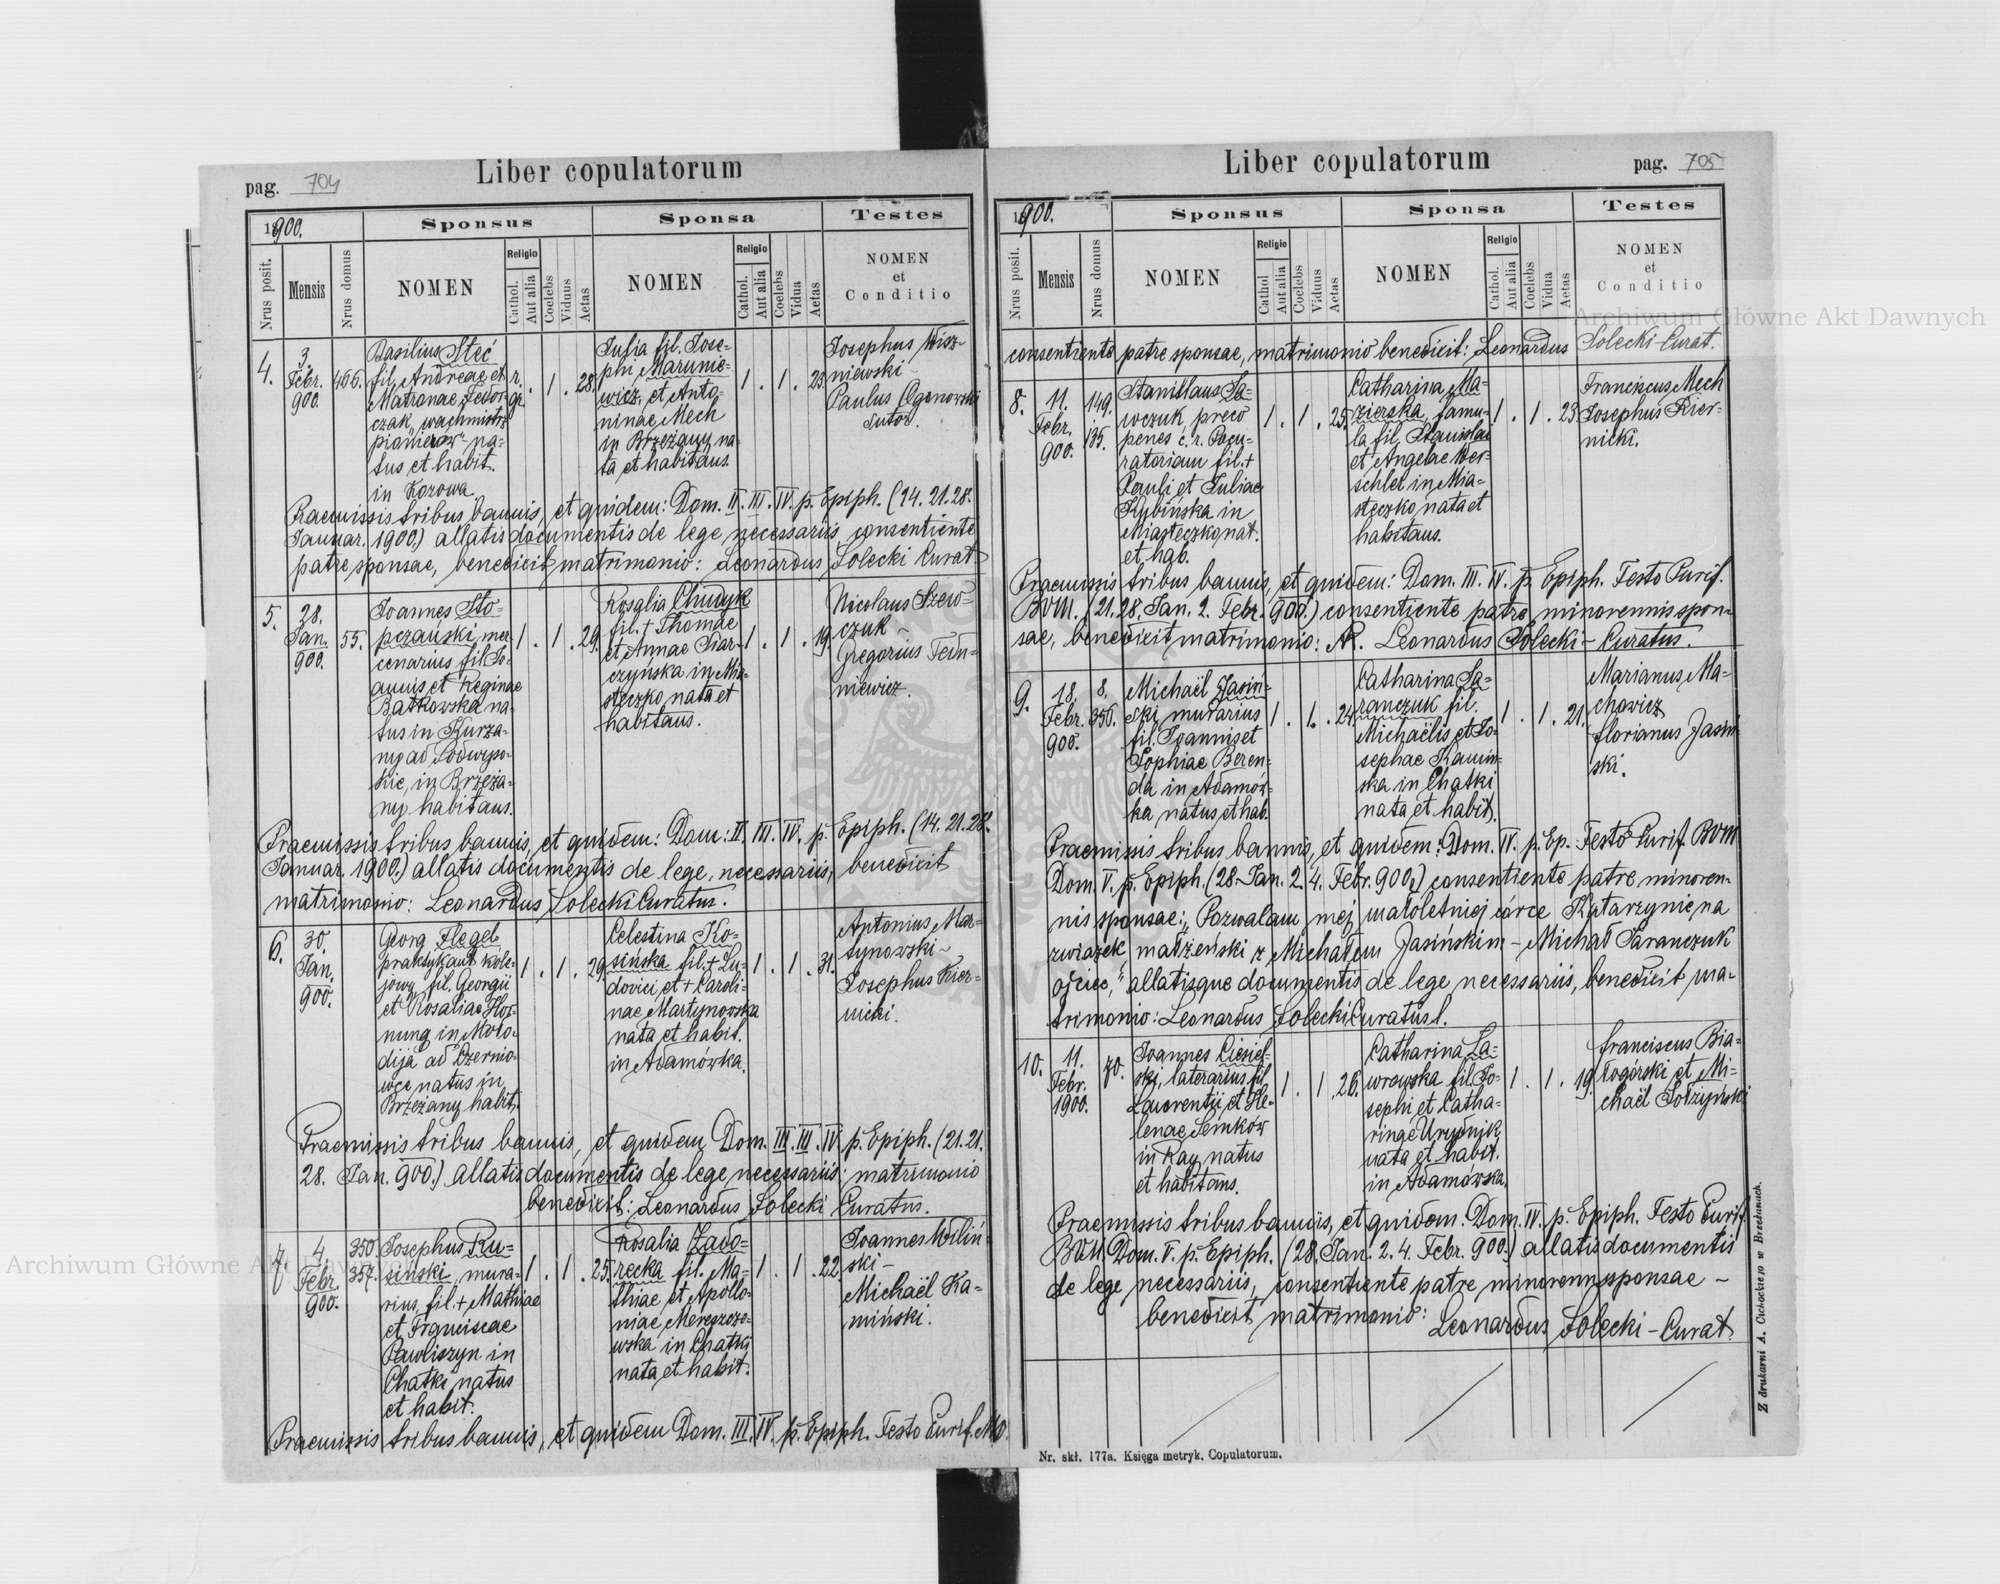 Liber copulatorum
pag. 704
1900.
Sponsus
Sponsa
Testes
Nrus posit.
Mensis
Nrus domus
NOMEN
Religio
Cathol.
Aut alia
Coelebs
Viduus
Aetas
NOMEN
Religio
Cathol.
Aut alia
Coelebs
Vidua
Aetas
NOMEN
et
Conditio
4.
3.
Febr.
900.
466.
Basilius Steć
fil. Andreae et
Matronae Fedor-
czak, wachmistrz
pionierów na-
tus et habit.
in Kozowa
r.
gr.
. 1 . 28.
Julia fil. Jose-
phi Marunie-
wicz, et Anto-
ninae Mech
in Brzeżany na-
ta et habitans.
1 . 1 . 23.
Josephus Wisz-
niewski -
Paulus Ogonowski
sutor.
Praemissis tribus bannis, et quidem: Dom. II. III. IV. p. Epiph. (14. 21. 28.
Januar. 1900.) allatis documentis de lege necessariis, consentiente
patre sponsae, benedixit matrimonio: Leonardus Solecki Curat.
5.
28.
Jan.
900.
55.
Joannes Sto-
pczański, mer-
cenarius fil. Jo-
annis et Reginae
Batkowska na-
tus in Kurza-
ny ad Podwyso-
kie, in Brzeża-
ny habitans.
1 . 1 . 29.
Rosalia Chudyk
fil. + Thomae
et Annae Kar-
czyńska in Mia-
steczko nata et
habitans.
1 . 1 . 19.
Nicolaus Szew-
czuk -
Gregorius Fedu-
niewicz.
Praemissis tribus bannis, et quidem: Dom: II. III. IV. p. Epiph. (14. 21. 28.
Januar. 1900.) allatis documentis de lege, necessariis, benedixit
matrimonio: Leonardus Solecki Curatus.
6.
30.
Jan.
900.
Georg Flegel
praktykant kole-
jowy fil. Georgii
et Rosaliae Hor-
nung in Moło-
dija ad Czernio-
wce natus in
Brzeżany habit.
1 . 1 . 29.
Celestina Ko-
sińska fil. + Lu-
dovici et + Caroli-
nae Martynowska
nata et habit.
in Adamówka.
1 . 1 . 31.
Antonius Mar-
tynowski -
Josephus Kier-
nicki.
Praemissis tribus bannis, et quidem Dom. III. III. IV. p. Epiph. (21. 21.
28. Jan. 900.) allatis documentis de lege necessariis matrimonio
benedixit: Leonardus Solecki Curatus.
7.
4.
Febr.
900.
350.
357.
Josephus Ru-
siński, mura-
rius, fil. + Mathiae
et Franciscae
Pawliszyn in
Chatki natus
et habit.
1 . 1 . 25.
Rosalia Zawo-
recka fil. Ma-
thiae et Apollo-
niae Mereszczo-
wska in Chatki
nata et habit.
1 . 1 22
Joannes Wiliń-
ski -
Michaël Ka-
miński.
Praemissis tribus bannis, et quidem Dom. III. IV. p. Epiph. Festo Purif.
Liber copulatorum
pag. 705
1900.
Sponsus
Sponsa
Testes
Nrus posit.
Mensis
Nrus domus
NOMEN
Religio
Cathol
Aut alia
Coelebs
Viduus
Aetas
NOMEN
Religio
Cathol.
Aut alia
Coelebs
Vidua
Aetas
NOMEN
et
Conditio
consentiente patre sponsae, matrimonio benedixit: Leonardus Solecki Curat.
8.
11.
Febr.
900.
149.
135.
Stanislaus Sa-
wczuk, preco
penes c. r. Procu-
ratoriam fil. +
Pauli et Juliae
Kybińska in
Miasteczko nat.
et hab.
1 . 1 . 25.
Catharina Ma-
zierska, famu-
la fil. Stanislai
et Angelae Wer-
schler in Mia-
steczko nata et
habitans.
1 . 1 . 23.
Franciscus Mech
Josephus Kier-
nicki.
Praemissis tribus bannis, et quidem: Dom. III. IV. p. Epiph. Festo Purif.
BVM. (21. 28. Jan. 2. Febr. 900.) consentiente patre minorennis spon-
sae, benedixit matrimonio: Leonardus Solecki - Curatus.
9.
18.
Febr.
900.
8.
356.
Michaël Jasiń-
ski, murarius
fil. Joannis et
Sophiae Beren-
da in Adamów-
ka natus et hab.
1 . 1 . 24.
Catharina Sa-
ranczuk fil.
Michaëlis et Jo-
sephae Kamiń-
ska in Chatki
nata et habit.
1 . 1 . 21.
Marianus Ma-
chowicz
Florianus Jasiń-
ski.
Praemissis tribus bannis, et quidem: Dom. IV. p. Ep. Festo Purif. BVM
Dom. V. p. Epiph. (28. Jan. 2. 4. Febr. 900.) consentiente patre minoren-
nis sponsae: „Pozwalam mej małoletniej córce Katarzynie, na
związek małżeński z Michałem Jasińskim - Michał Saranczuk
ojciec," allatisque documentis de lege necessariis, benedixit ma-
trimonio: Leonardus Solecki Curatus.
10.
11.
Febr.
1900.
70.
Joannes Ciesiel-
ski, laterarius fil.
Laurentii et He-
lenae Semków
in Ray natus
et habitans.
1 . 1 . 26.
Catharina La-
wrowska fil. Jo-
sephi et Catha-
rinae Urydnik
nata et habit.
in Adamówka.
1 . 1 . 19.
Franciscus Bia-
łogórski et Mi-
chaël Sołżyński
Praemissis tribus bannis, et quidem: Dom. IV. p. Epiph. Festo Purif.
BVM. Dom. V. p. Epiph. (28. Jan. 2. 4. Febr. 900.) allatis documentis
de lege necessariis, consentiente patre minorennis sponsae -
benedixit matrimonio: Leonardus Solecki - Curat.
Nr. skł. 177a. Księga metryk. Copulatorum.
Z drukarni A. Cichockiego w Brzeżanach.
Archiwum Główne Akt Dawnych
Archiwum Główne Akt Dawnych